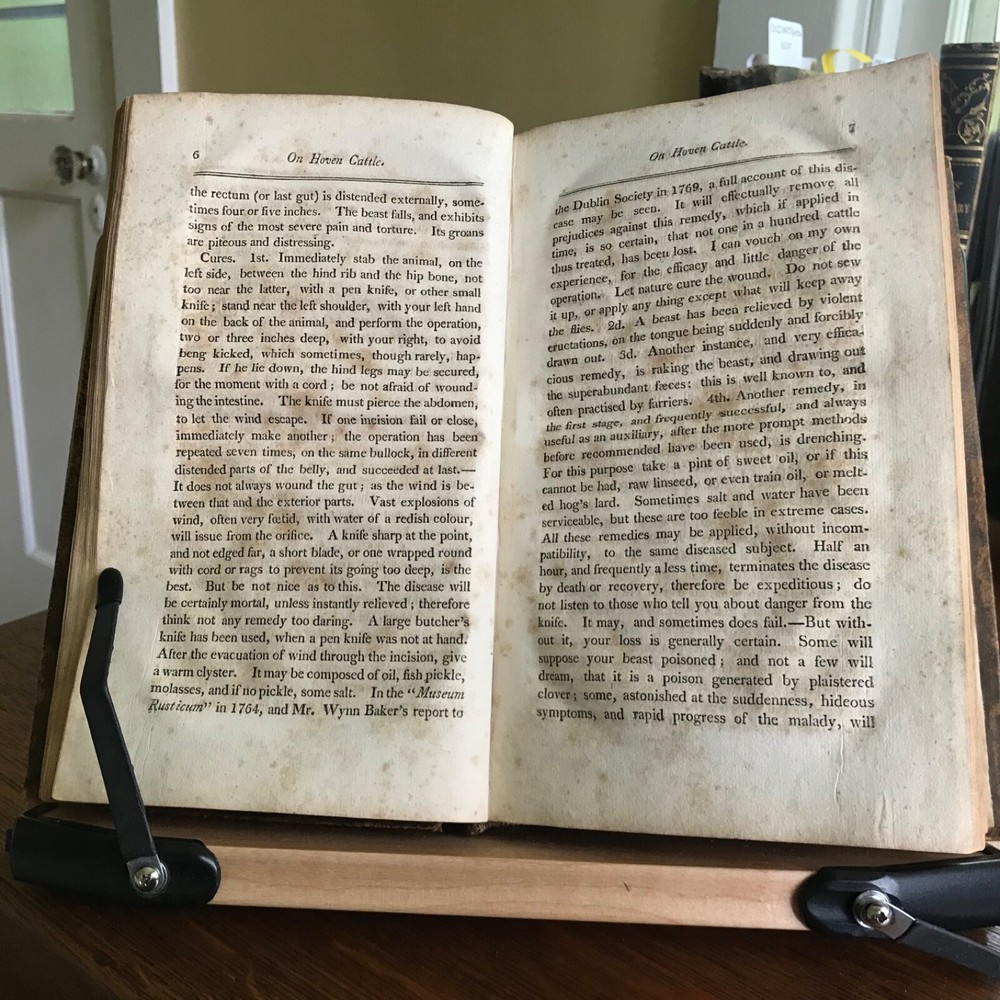 6
On Hoven Cattle.
the rectum (or last gut) is distended externally, some-
times four or five inches. The beast falls, and exhibits
signs of the most severe pain and torture. Its groans
are piteous and distressing.
Cures. 1st. Immediately stab the animal, on the
left side, between the hind rib and the hip bone, not
too near the latter, with a pen knife, or other small
knife; stand near the left shoulder, with your left hand
on the back of the animal, and perform the operation,
two or three inches deep, with your right, to avoid
beng kicked, which sometimes, though rarely, hap-
pens. If he lie down, the hind legs may be secured,
for the moment with a cord; be not afraid of wound-
ing the intestine. The knife must pierce the abdomen,
to let the wind escape. If one incision fail or close,
immediately make another; the operation has been
repeated seven times, on the same bullock, in different
distended parts of the belly, and succeeded at last.—
It does not always wound the gut; as the wind is be-
tween that and the exterior parts. Vast explosions of
wind, often very fœtid, with water of a redish colour,
will issue from the orifice. A knife sharp at the point,
and not edged far, a short blade, or one wrapped round
with cord or rags to prevent its going too deep, is the
best. But be not nice as to this. The disease will
be certainly mortal, unless instantly relieved; therefore
think not any remedy too daring. A large butcher's
knife has been used, when a pen knife was not at hand.
After the evacuation of wind through the incision, give
a warm clyster. It may be composed of oil, fish pickle,
molasses, and if no pickle, some salt. In the "Museum
Rusticum" in 1764, and Mr. Wynn Baker's report to
On Hoven Cattle.
7
the Dublin Society in 1769, a full account of this dis-
case may be seen. It will effectually remove all
prejudices against this remedy, which if applied in
time, is so certain, that not one in a hundred cattle
thus treated, has been lost. I can vouch on my own
experience, for the efficacy and little danger of the
operation. Let nature cure the wound. Do not sew
it up, or apply any thing except what will keep away
the flies. 2d. A beast has been relieved by violent
eructations, on the tongue being suddenly and forcibly
drawn out. 3d. Another instance, and very effica-
cious remedy, is raking the beast, and drawing out
the superabundant fæces: this is well known to, and
often practised by farriers. 4th. Another remedy, in
the first stage, and frequently successful, and always
useful as an auxiliary, after the more prompt methods
before recommended have been used, is drenching.
For this purpose take a pint of sweet oil, or if this
cannot be had, raw linseed, or even train oil, or melt-
ed hog's lard. Sometimes salt and water have been
serviceable, but these are too feeble in extreme cases.
All these remedies may be applied, without incom-
patibility, to the same diseased subject. Half an
hour, and frequently a less time, terminates the disease
by death or recovery, therefore be expeditious; do
not listen to those who tell you about danger from the
knife. It may, and sometimes does fail.—But with-
out it, your loss is generally certain. Some will
suppose your beast poisoned; and not a few will
dream, that it is a poison generated by plaistered
clover; some, astonished at the suddenness, hideous
symptoms, and rapid progress of the malady, will